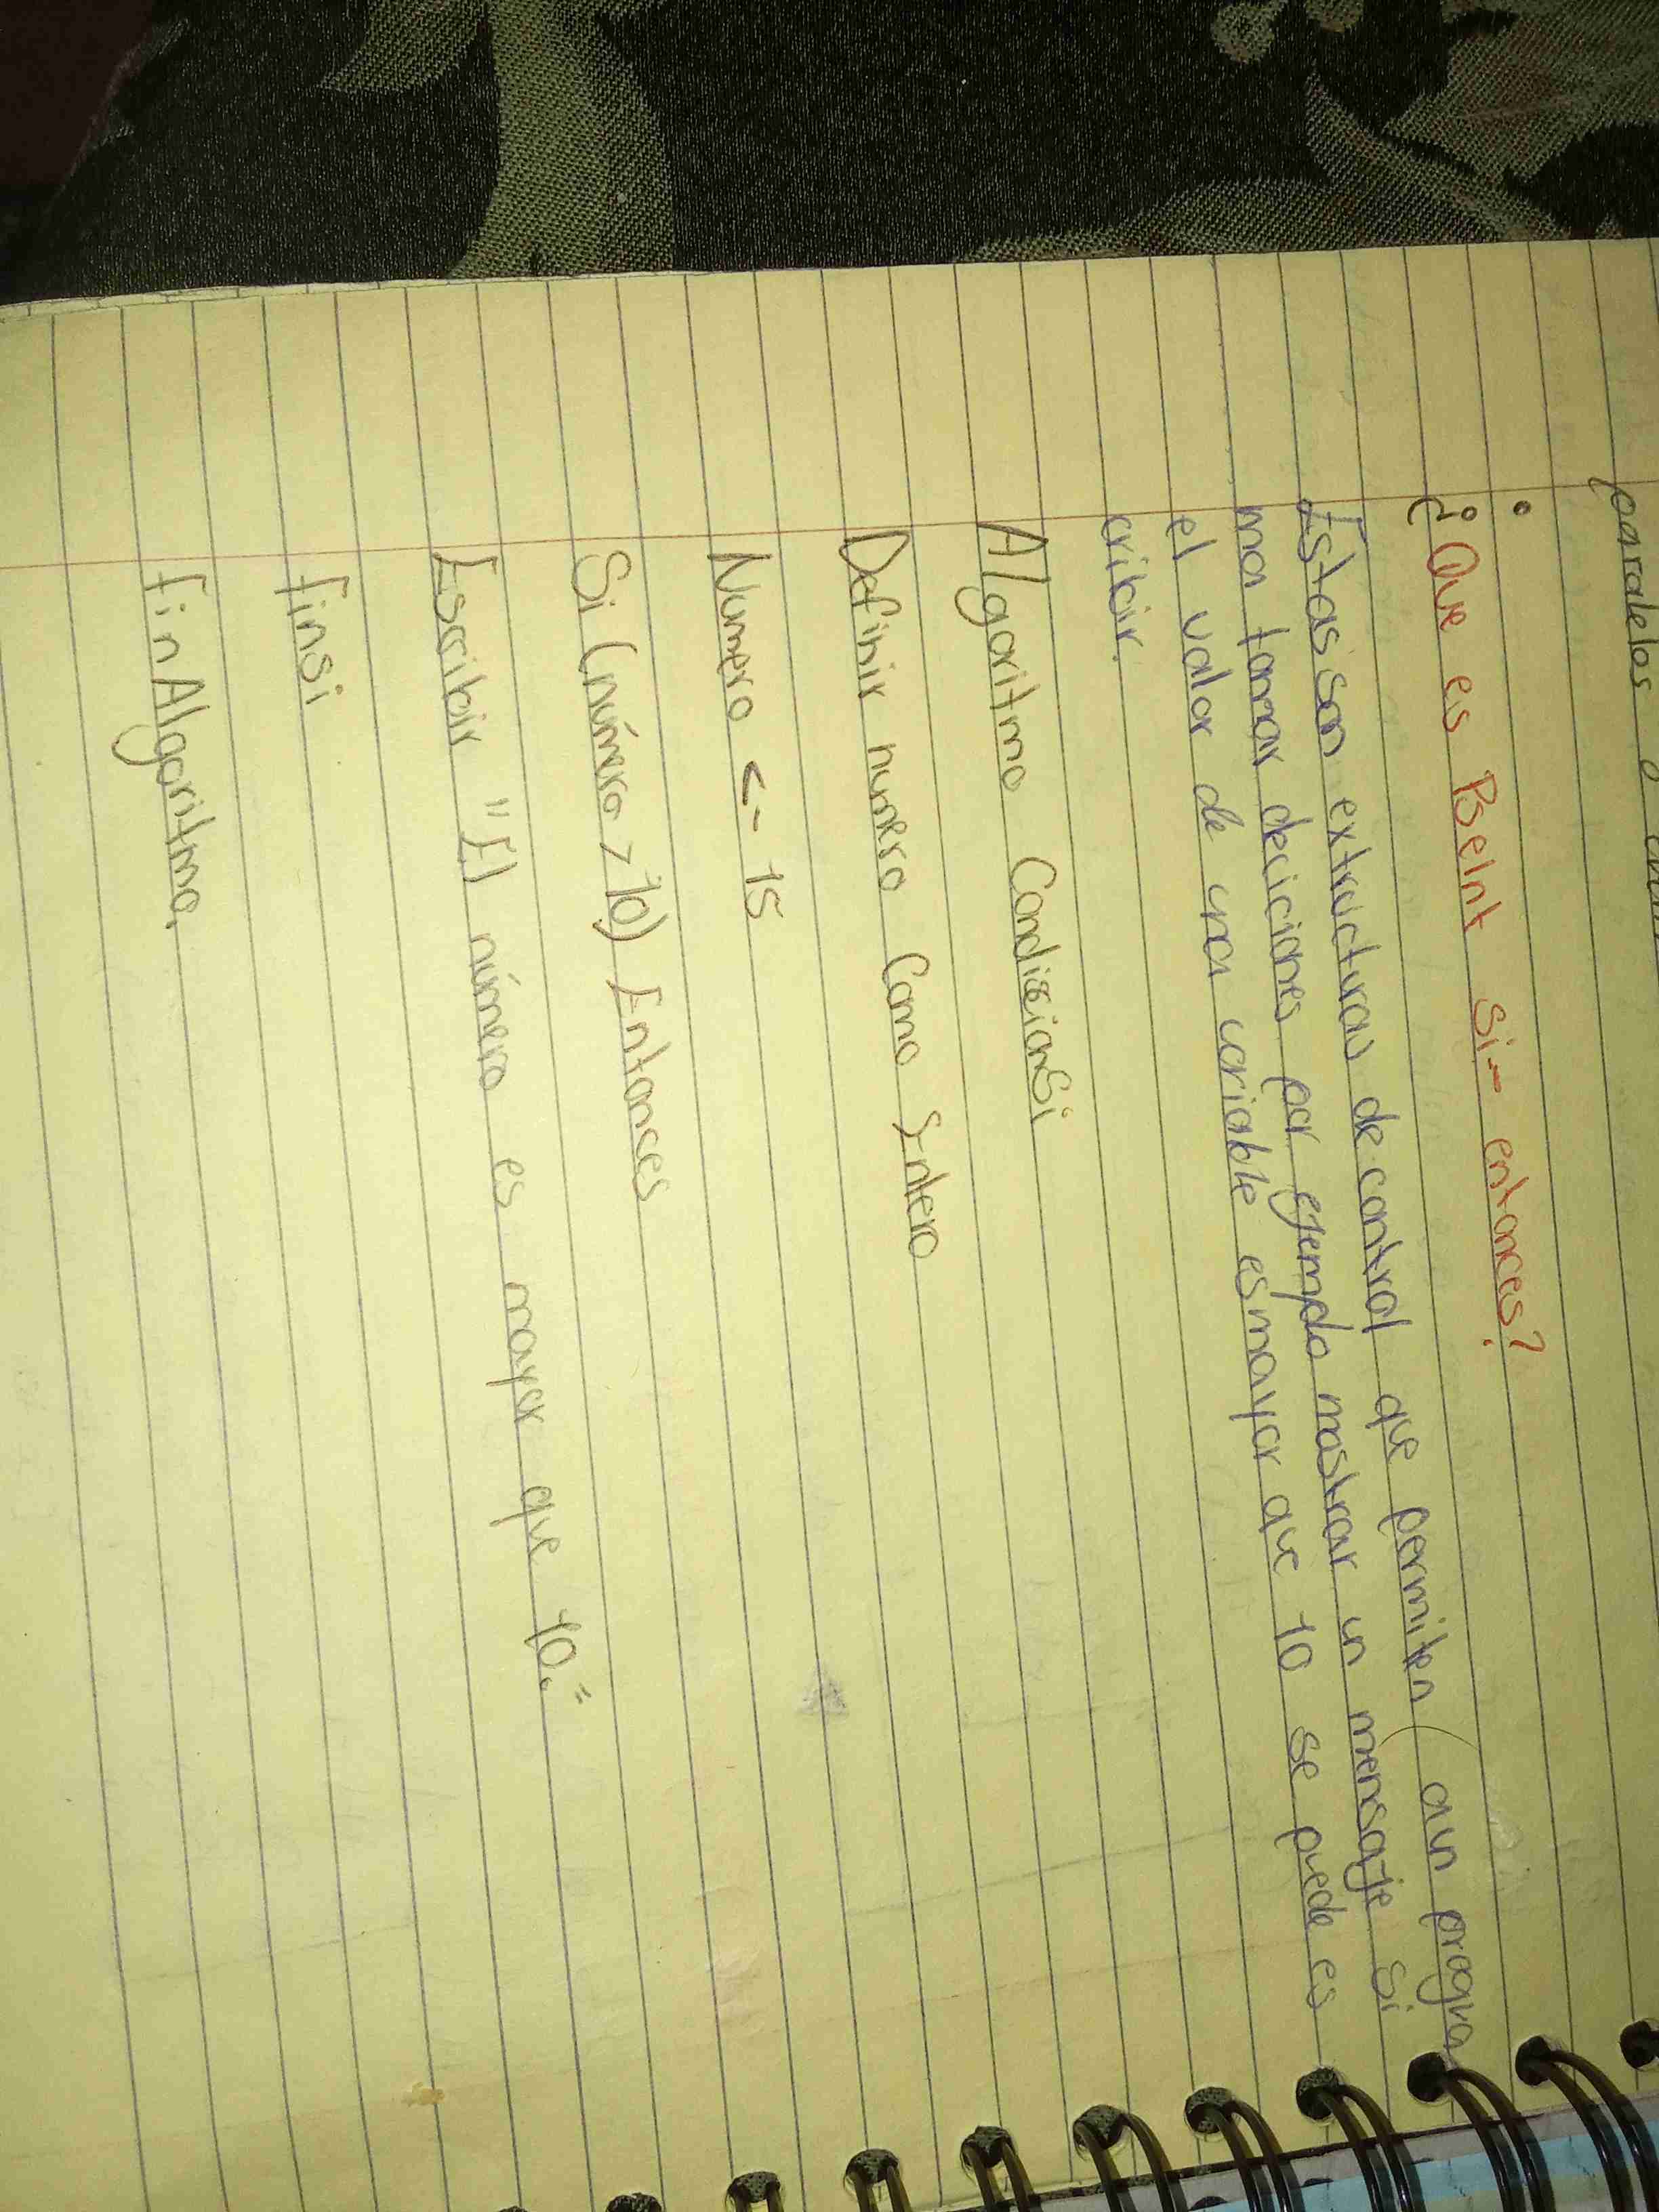 paralelos o
¿Que es PseInt Si-- entonces?
Estas son extructuras de control que permiten aun progra
ma tomar deciciones por ejempdo mostrar un mensaje Si
el valor de una variable es mayor que 10 se puede es
cribir.
Algoritmo CondisionSi
Definir numero Como Entero
Numero <- 15
Si (número > 10) Entonces
Escribir "El número es mayor que 10."
finsi
finAlgoritmo.